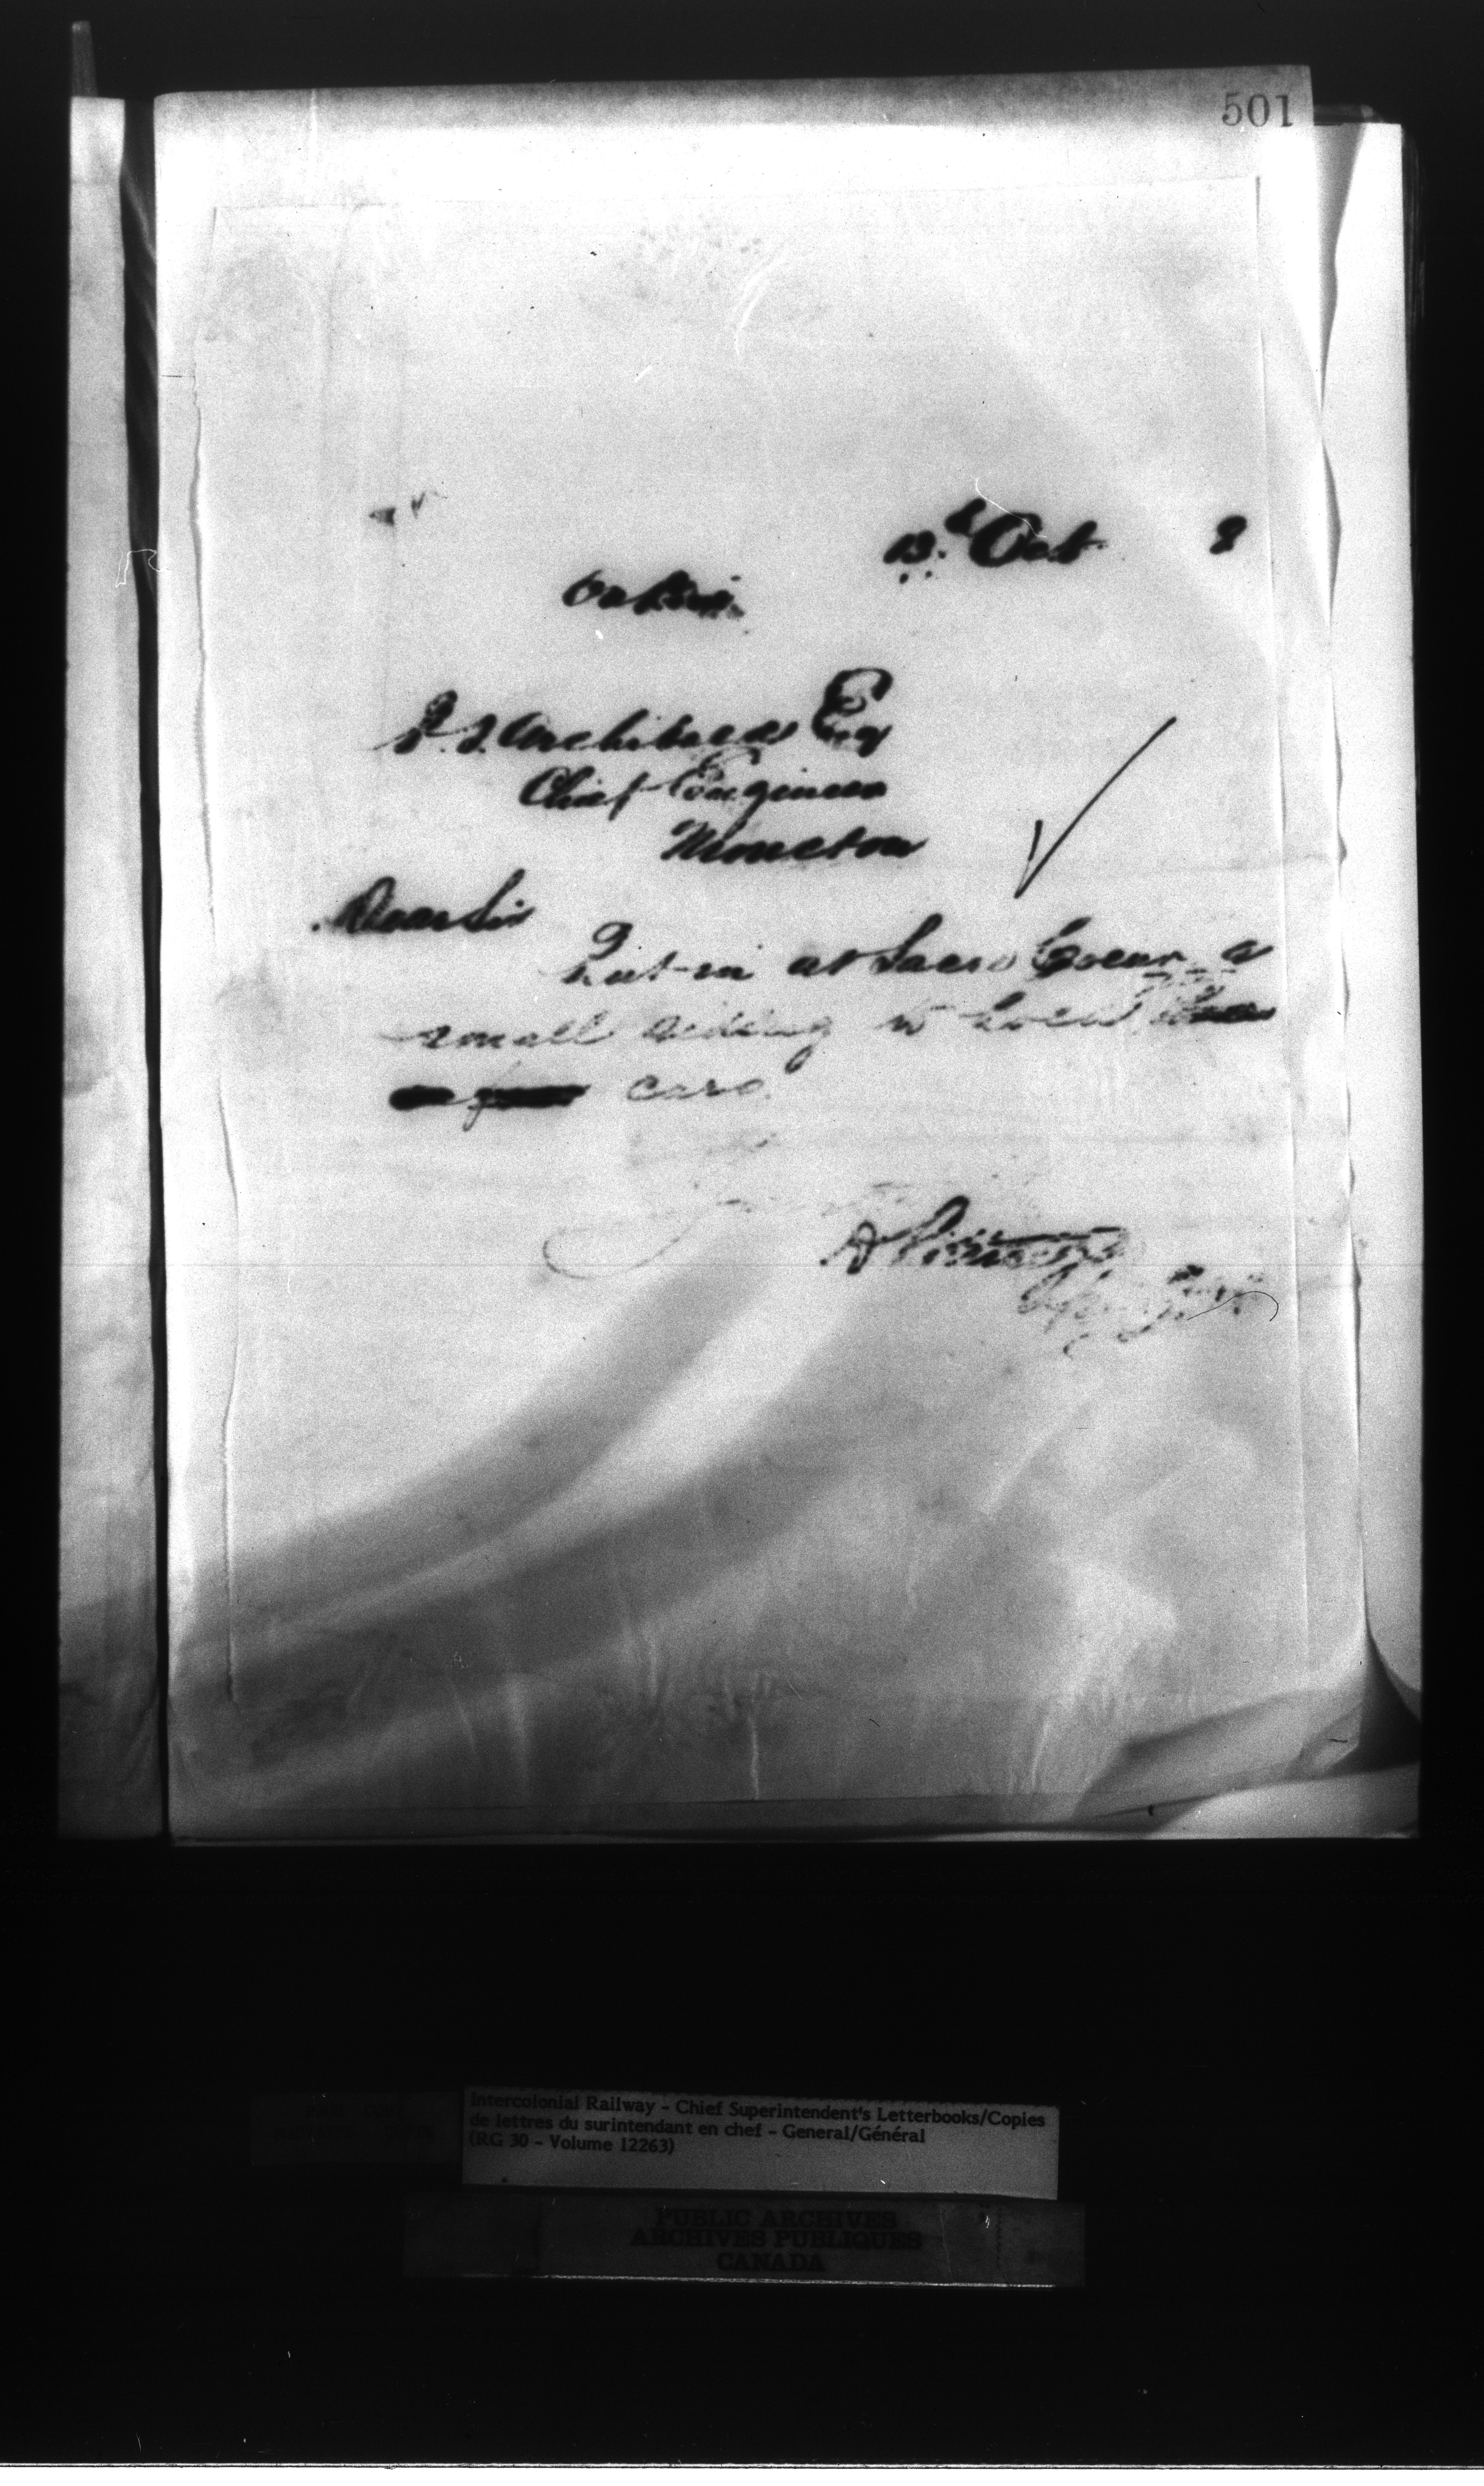 501
13th Oct 8
P. S. Archibald Esq
Chief Engineer
Moncton
Dear Sir
Put in at Sacre Coeur a
small siding to hold
cars.
A
Intercolonial Railway - Chief Superintendent's Letterbooks/Copies
de lettres du surintendant en chef - General/Général
(RG 30 - Volume 12263)
PUBLIC ARCHIVES
ARCHIVES PUBLIQUES
CANADA